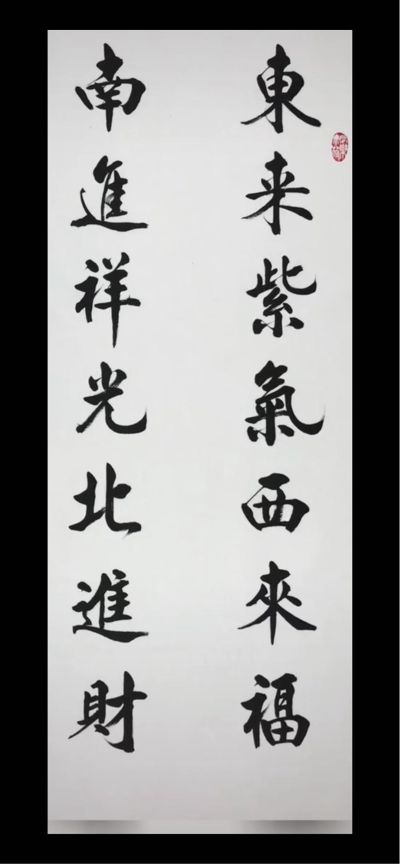 東来紫氣西來福
南進祥光北進財